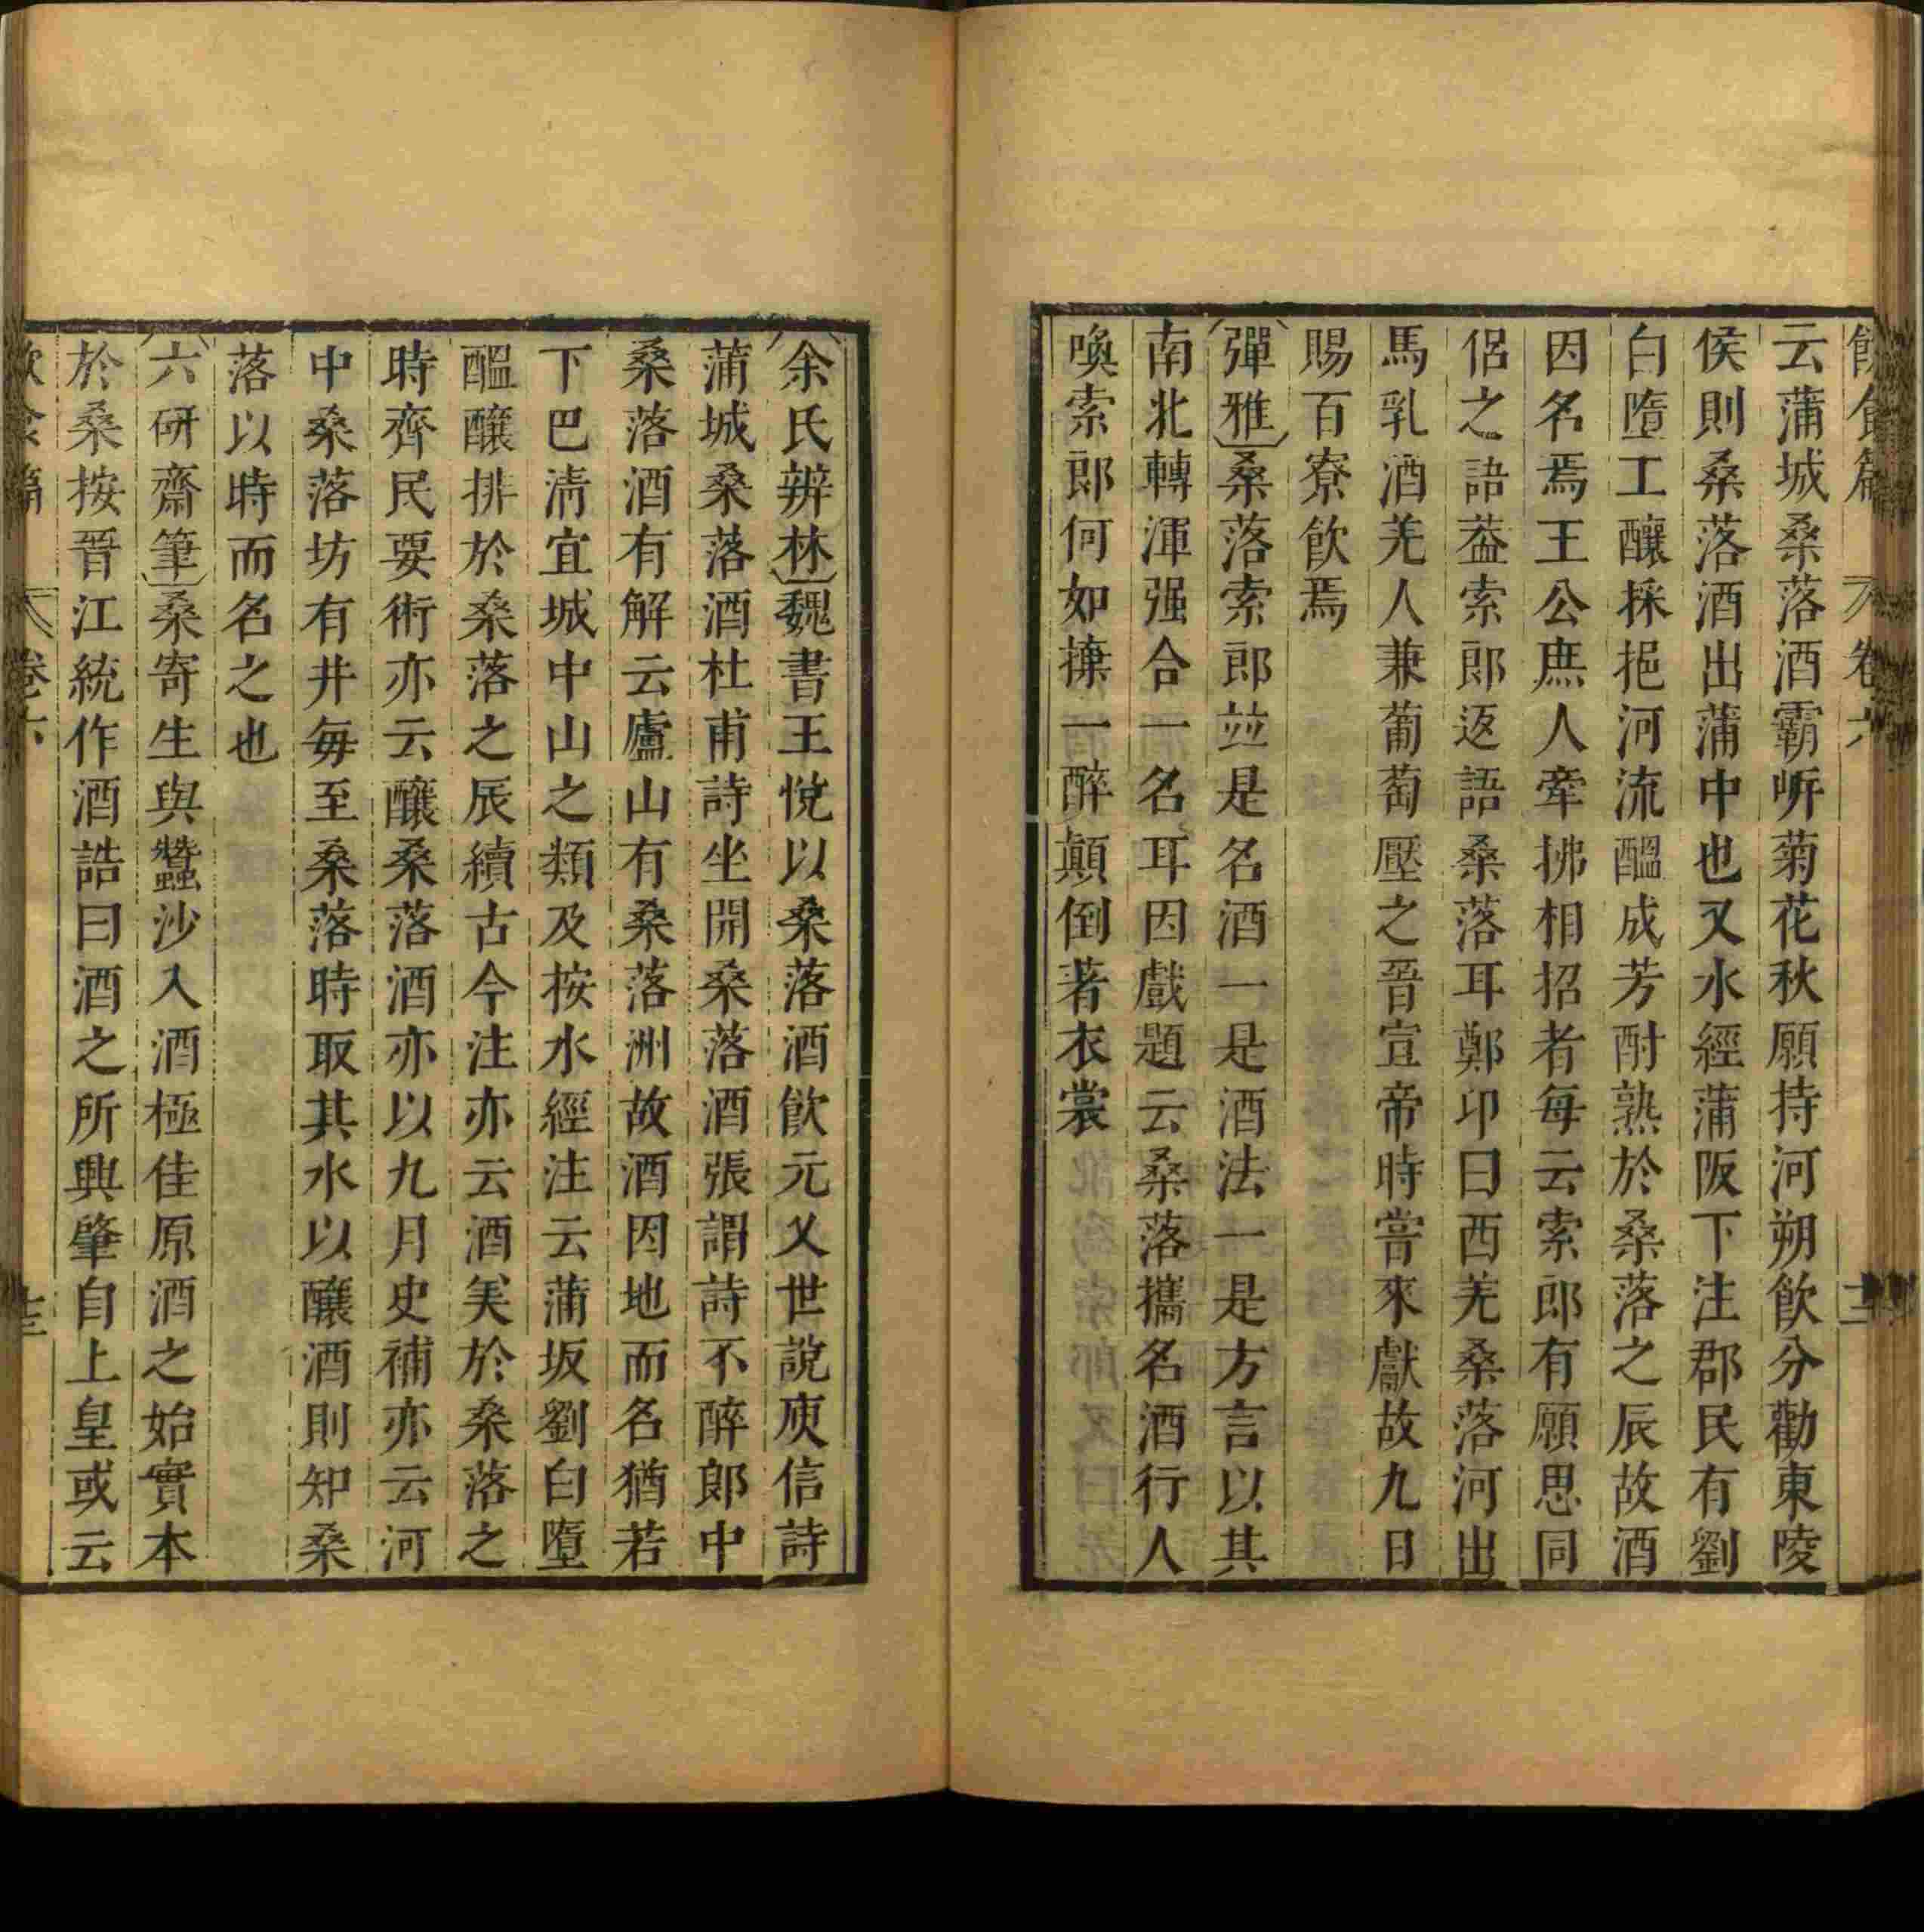 飲食篇 卷六 十二
云蒲城桑落酒霸岸菊花秋願持河朔飲分勸東陵
侯則桑落酒出蒲中也又水經蒲阪下注郡民有劉
白墮工釀採挹河流醞成芳酎熟於桑落之辰故酒
因名焉王公庶人牽拂相招者每云索郎有願思同
侶之語葢索郎返語桑落耳鄭卬曰西羌桑落河出
馬乳酒羌人兼葡萄壓之晉宣帝時嘗來獻故九日
賜百寮飲焉
彈雅桑落索郎竝是名酒一是酒法一是方言以其
南北轉渾强合一名耳因戲題云桑落攜名酒行人
喚索郎何如𢹂一醉顛倒著衣裳
余氏辨林魏書王悅以桑落酒飲元乂世說庾信詩
蒲城桑落酒杜甫詩坐開桑落酒張謂詩不醉郞中
桑落酒有解云廬山有桑落洲故酒因地而名猶若
下巴淸宜城中山之類及按水經注云蒲坂劉白墮
醞釀排於桑落之辰續古今注亦云酒美於桑落之
時齊民要術亦云釀桑落酒亦以九月史補亦云河
中桑落坊有井每至桑落時取其水以釀酒則知桑
落以時而名之也
六研齋筆桑寄生與蠶沙入酒極佳原酒之始實本
於桑按晉江統作酒誥曰酒之所興肇自上皇或云
飲食篇 卷六 十三